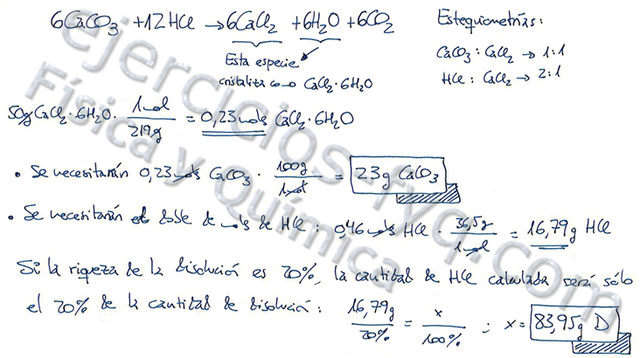 6CaCO₃ + 12HCl → 6CaCl₂ + 6H₂O + 6CO₂
Estequiometrías:
Esta especie
cristaliza como CaCl₂·6H₂O
CaCO₃ : CaCl₂ → 1:1
HCl : CaCl₂ → 2:1
50g CaCl₂·6H₂O · 1mol/219g = 0,23 mols CaCl₂·6H₂O
• Se necesitarán 0,23 mols CaCO₃ · 100g/1mol = 23g CaCO₃
• Se necesitarán el doble de mols de HCl : 0,46 mols HCl · 36,5g/1mol = 16,79g HCl
Si la riqueza de la disolución es 20%, la cantidad de HCl calculada será sólo
el 20% de la cantidad de disolución : 16,79g/20% = x/100% ; x = 83,95g D
ejercicios-fyq.com
Física y Química